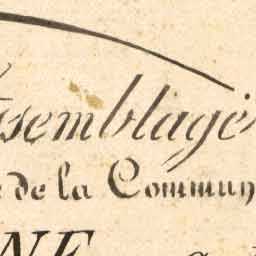 ssemblage
de la Commun
NE